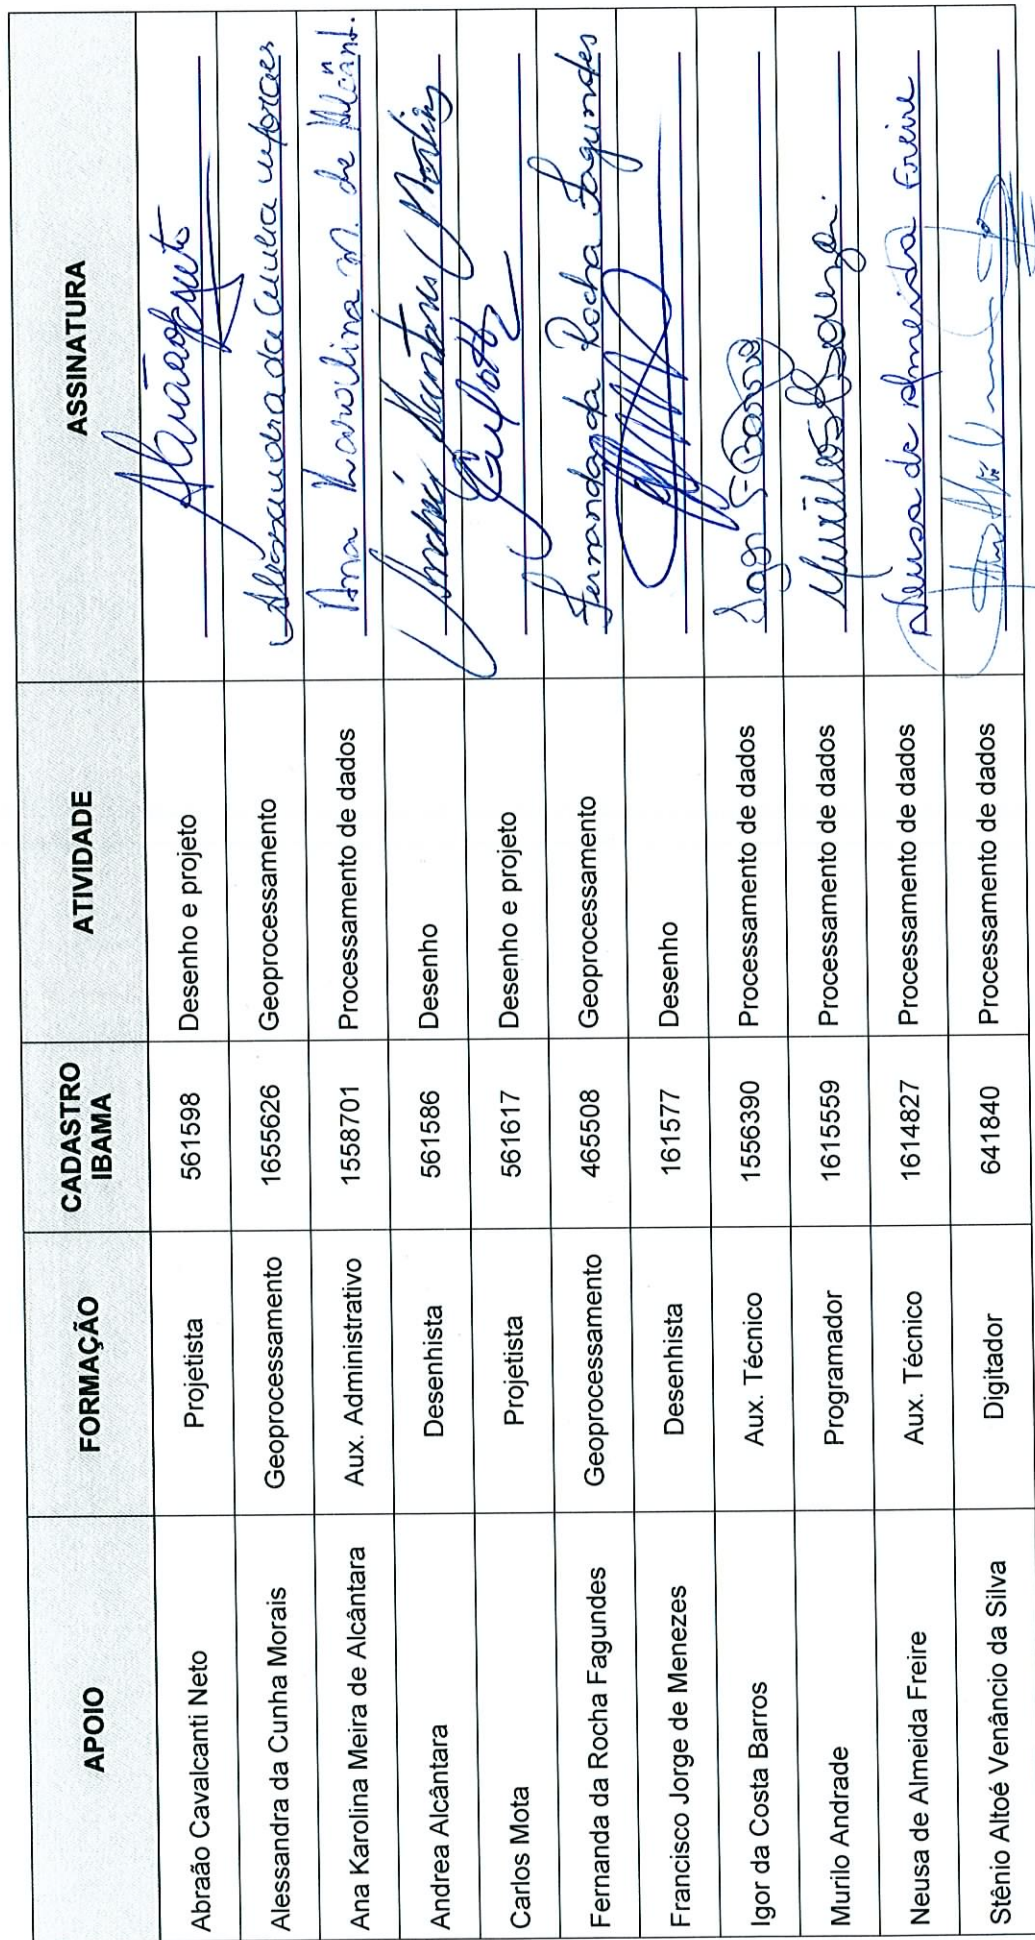 APOIO FORMAÇÃO CADASTRO IBAMA ATIVIDADE ASSINATURA
Abraão Cavalcanti Neto Projetista 561598 Desenho e projeto
Alessandra da Cunha Morais Geoprocessamento 1655626 Geoprocessamento Alessandra da Cunha Moraes
Ana Karolina Meira de Alcântara Aux. Administrativo 1558701 Processamento de dados Ana Karolina M. de Alcânt.
Andrea Alcântara Desenhista 561586 Desenho
Carlos Mota Projetista 561617 Desenho e projeto
Fernanda da Rocha Fagundes Geoprocessamento 465508 Geoprocessamento Fernanda da Rocha Fagundes
Francisco Jorge de Menezes Desenhista 161577 Desenho
Igor da Costa Barros Aux. Técnico 1556390 Processamento de dados
Murilo Andrade Programador 1615559 Processamento de dados
Neusa de Almeida Freire Aux. Técnico 1614827 Processamento de dados Neusa de Almeida Freire
Stênio Altoé Venâncio da Silva Digitador 641840 Processamento de dados